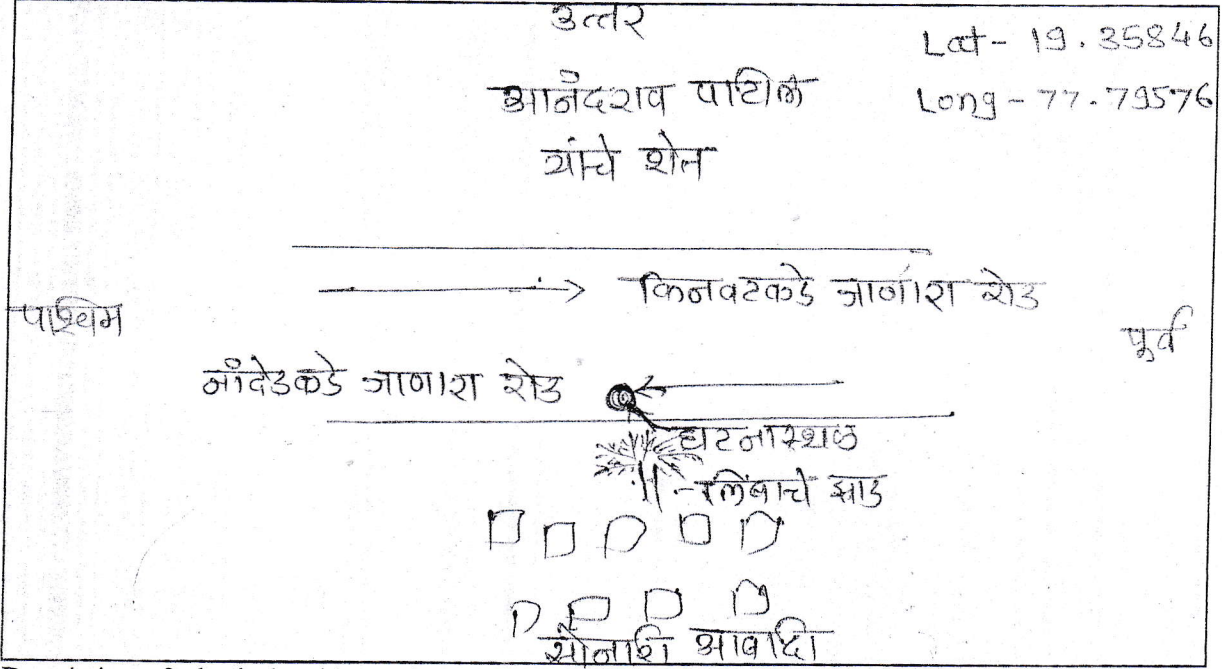 उत्तर
Lat - 19.35846
Long - 77.79576
आनंदराव पाटिल
यांचे शेत
किनवटकडे जाणारा रोड
पश्चिम
पूर्व
नांदेडकडे जाणारा रोड
घटनास्थळ
- लिंबाचे झाड
आबादी